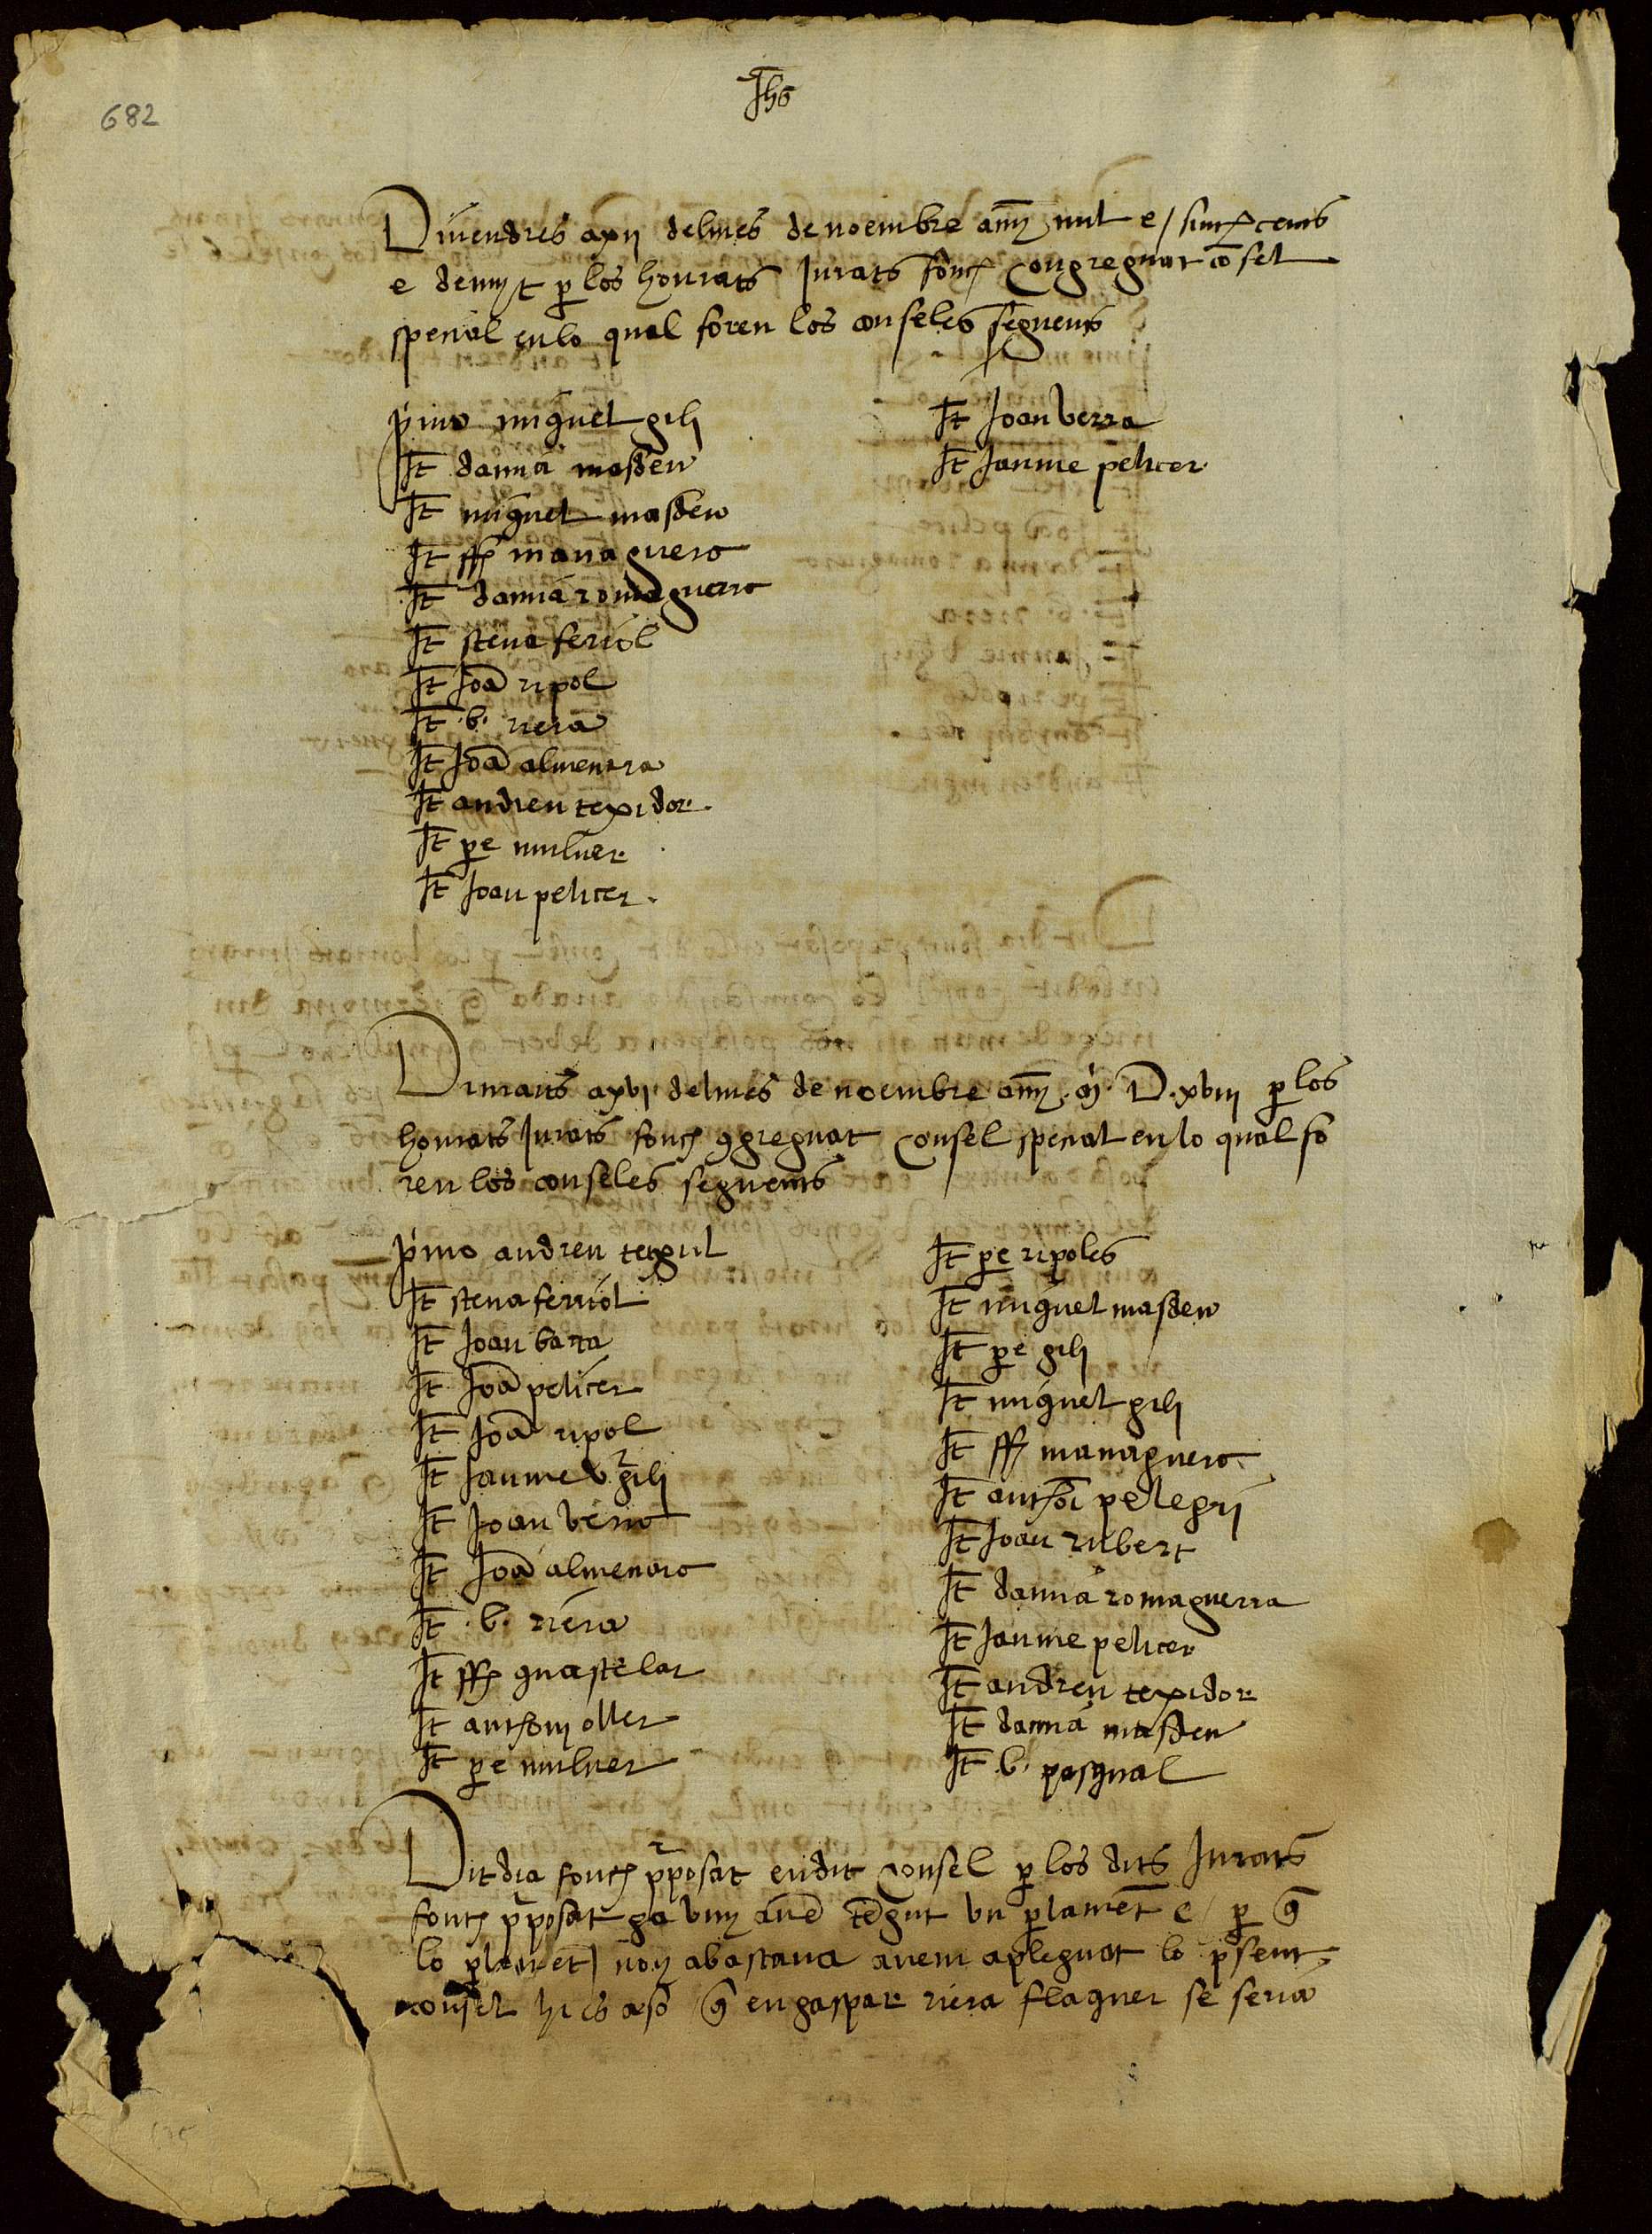 682
Jhs
Divendres a xii del mes de noembre any mil e sinch cents
e devuyt per los honrats Jurats fonch congreguat consel
special en lo qual foren los conseles seguents
primo miquel gili
It damia masdeu
It miquel masdeu
It ff managuera
It damia romaguera
It steva feriol
It Joā ripol
It .b. riera
It Joā almenara
It andreu texidor
It pere muluer
It Joan pelicer
It Joan verra
It Jaume pelicer
Dimars a xvi del mes de noembre any M. D. xviii per los
honrats Jurats fonch congreguat consel special en lo qual fo
ren los conseles seguents
primo andreu
It steva ferriol
It Joan barra
It Joā pelicer
It Joā ripol
It Jaume vr gili
It Joan
It Joā almenara
It .b. riera
It ff guastelar
It anthoni oller
It pere muluer
It pere ripoles
It miquel masdeu
It pere gili
It miquel gili
It ff managuera
It anthoi pelegri
It Joan rubert
It damia romaguerra
It Jaume pelicer
It andreu texidor
It damia masdeu
It .b. pasqual
Dit dia fonch proposat en dit consel per los dits Jurats
fonch proposat ja avem tengut un parlament e per que
lo parlament non abastava avem apleguat lo present
consel hi es aso que en gaspar riera flaquer se seria